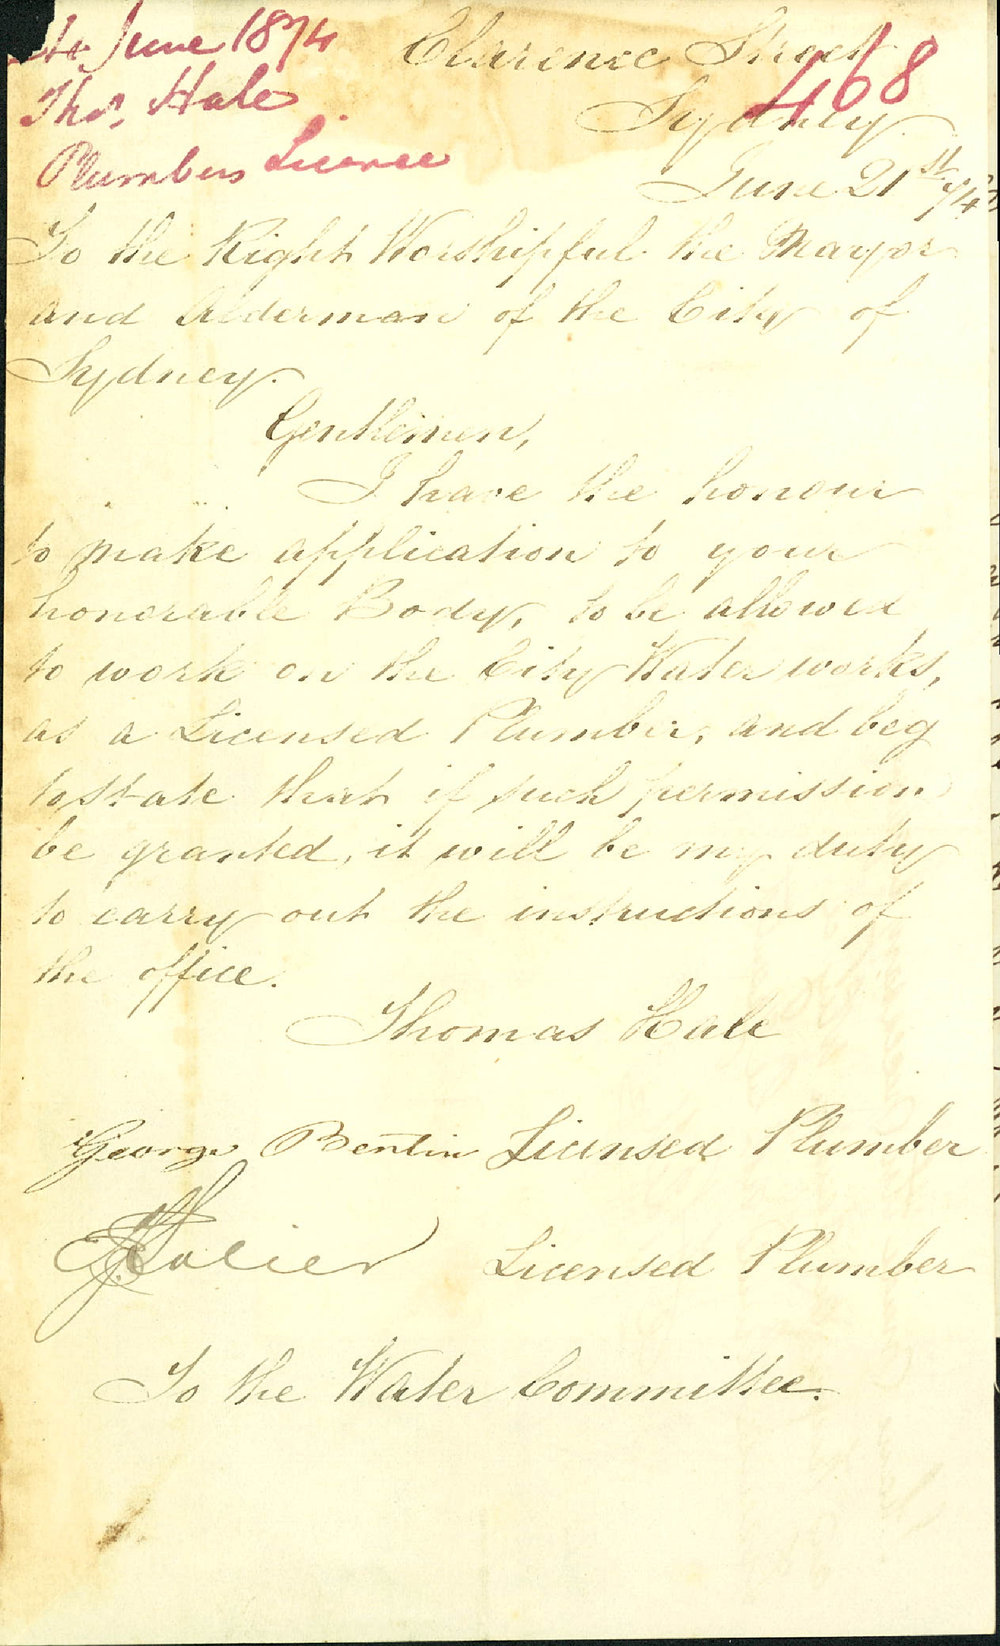 June 1874
Thos. Hale
Plumbers Licence
468
Clarence Street
Sydney.
June 21st /74
To the Right Worshipful the Mayor
and Alderman of the City of
Sydney.
Gentlemen,
I have the honour
to make application to your
honorable Body, to be allowed
to work on the City Water works,
as a Licensed Plumber, and beg
to state that if such permission
be granted, it will be my duty
to carry out the instructions of
the office.
Thomas Hale
George Bentin Licensed Plumber
Licensed Plumber
To the Water Committee.